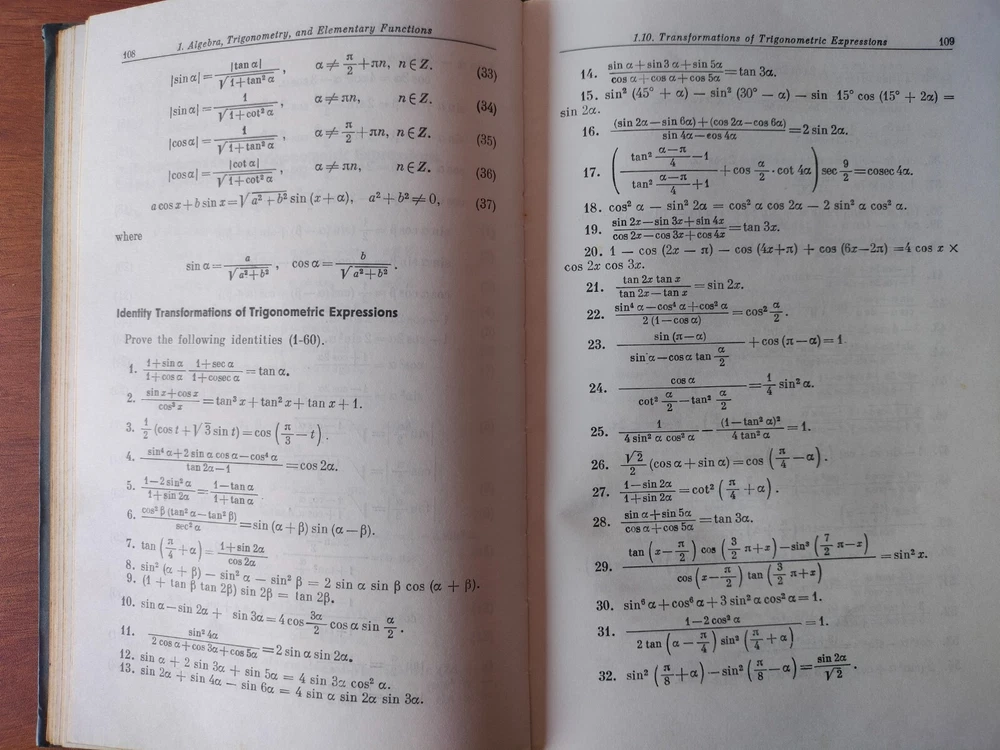 108 1. Algebra, Trigonometry, and Elementary Functions
|sin α| = |tan α| / √(1+tan² α), α ≠ π/2 + πn, n ∈ Z. (33)
|sin α| = 1 / √(1+cot² α), α ≠ πn, n ∈ Z. (34)
|cos α| = 1 / √(1+tan² α), α ≠ π/2 + πn, n ∈ Z. (35)
|cos α| = |cot α| / √(1+cot² α), α ≠ πn, n ∈ Z. (36)
a cos x + b sin x = √(a² + b²) sin (x + α), a² + b² ≠ 0, (37)
where
sin α = a / √(a²+b²), cos α = b / √(a²+b²).
Identity Transformations of Trigonometric Expressions
Prove the following identities (1-60).
1. (1+sin α)/(1+cos α) (1+sec α)/(1+cosec α) = tan α.
2. (sin x+cos x)/(cos³ x) = tan³ x + tan² x + tan x + 1.
3. 1/2 (cos t + √3 sin t) = cos (π/3 − t).
4. (sin⁴ α+2 sin α cos α−cos⁴ α)/(tan 2α−1) = cos 2α.
5. (1−2 sin² α)/(1+sin 2α) = (1−tan α)/(1+tan α).
6. (cos² β (tan² α−tan² β))/(sec² α) = sin (α + β) sin (α − β).
7. tan (π/4 + α) = (1+sin 2α)/(cos 2α)
8. sin² (α + β) − sin² α − sin² β = 2 sin α sin β cos (α + β).
9. (1 + tan β tan 2β) sin 2β = tan 2β.
10. sin α − sin 2α + sin 3α = 4 cos 3α/2 cos α sin α/2.
11. (sin² 4α)/(2 cos α+cos 3α+cos 5α) = 2 sin α sin 2α.
12. sin α + 2 sin 3α + sin 5α = 4 sin 3α cos² α.
13. sin 2α + sin 4α − sin 6α = 4 sin α sin 2α sin 3α.
1.10. Transformations of Trigonometric Expressions 109
14. (sin α+sin 3 α+sin 5α)/(cos α+cos α+cos 5α) = tan 3α.
15. sin² (45° + α) − sin² (30° − α) − sin 15° cos (15° + 2α) =
sin 2α.
16. ((sin 2α−sin 6α)+(cos 2α−cos 6α))/(sin 4α−cos 4α) = 2 sin 2α.
17. ((tan² (α−π)/4 −1)/(tan² (α−π)/4 +1) + cos α/2 · cot 4α) sec 9/2 = cosec 4α.
18. cos² α − sin² 2α = cos² α cos 2α − 2 sin² α cos² α.
19. (sin 2x−sin 3x+sin 4x)/(cos 2x−cos 3x+cos 4x) = tan 3x.
20. 1 − cos (2x − π) − cos (4x+π) + cos (6x−2π) =4 cos x ×
cos 2x cos 3x.
21. (tan 2x tan x)/(tan 2x−tan x) = sin 2x.
22. (sin⁴ α−cos⁴ α+cos² α)/(2 (1−cos α)) = cos² α/2.
23. (sin (π−α))/(sin α−cos α tan α/2) + cos (π − α) = 1.
24. (cos α)/(cot² α/2 − tan² α/2) = 1/4 sin² α.
25. 1/(4 sin² α cos² α) − ((1−tan² α)²)/(4 tan² α) = 1.
26. √2/2 (cos α + sin α) = cos (π/4 − α).
27. (1−sin 2α)/(1+sin 2α) = cot² (π/4 + α).
28. (sin α+sin 5α)/(cos α+cos 5α) = tan 3α.
29. (tan (x−π/2) cos (3/2 π+x)−sin³ (7/2 π−x))/(cos (x−π/2) tan (3/2 π+x)) = sin² x.
30. sin⁶ α + cos⁶ α + 3 sin² α cos² α = 1.
31. (1−2 cos² α)/(2 tan (α − π/4) sin² (π/4 + α)) = 1.
32. sin² (π/8 + α) − sin² (π/8 − α) = (sin 2α)/√2.